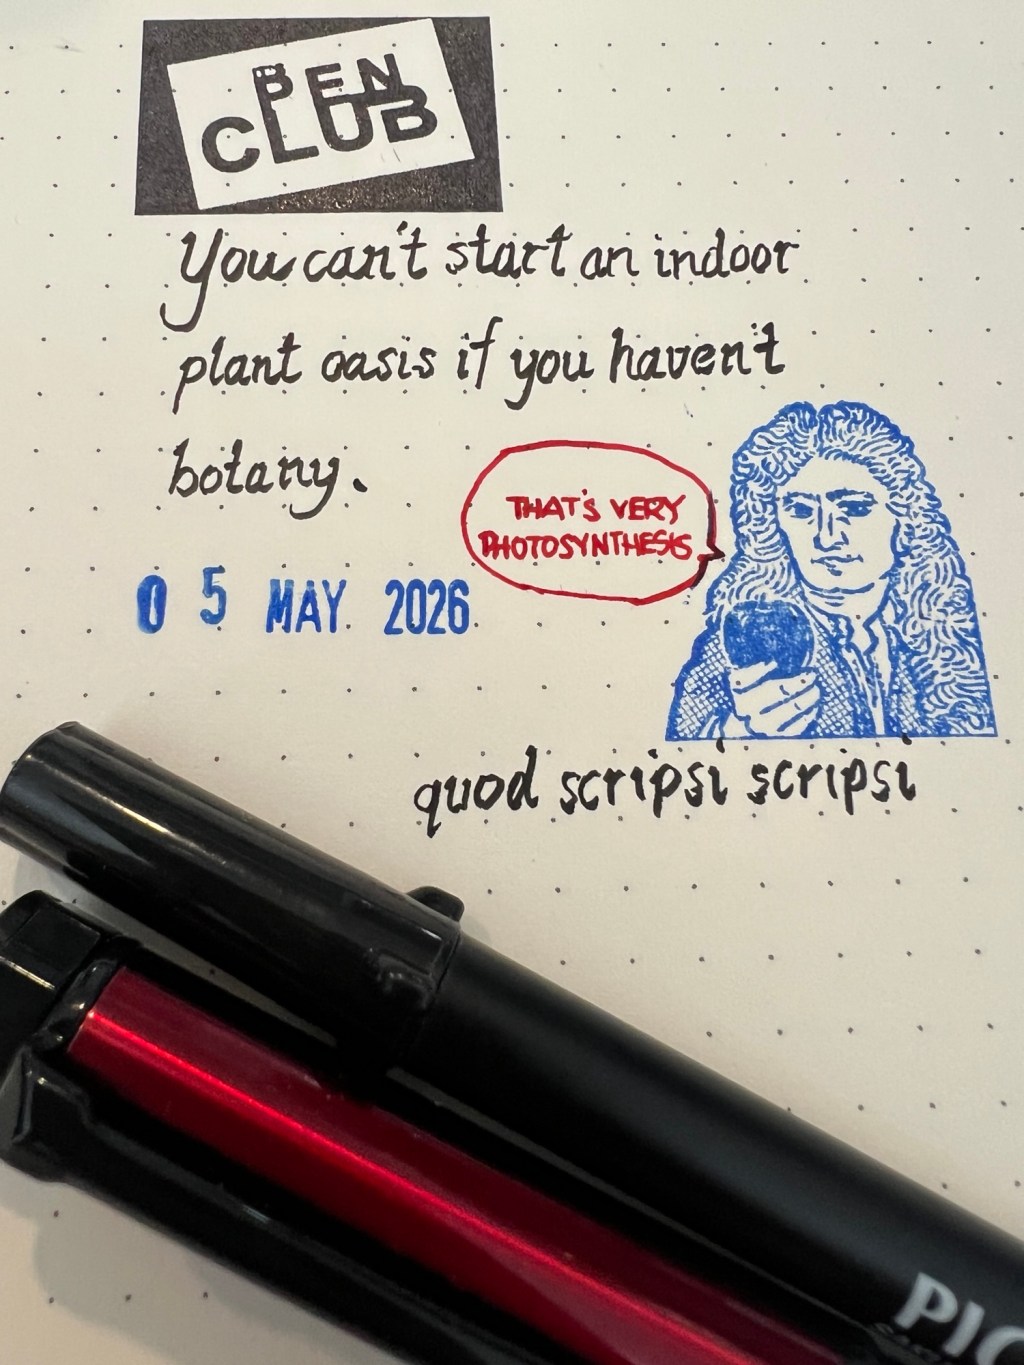 PEN
CLUB
You can't start an indoor
plant oasis if you haven't
botany.
THAT'S VERY
PHOTOSYNTHESIS
05 MAY 2026
quod scripsi scripsi